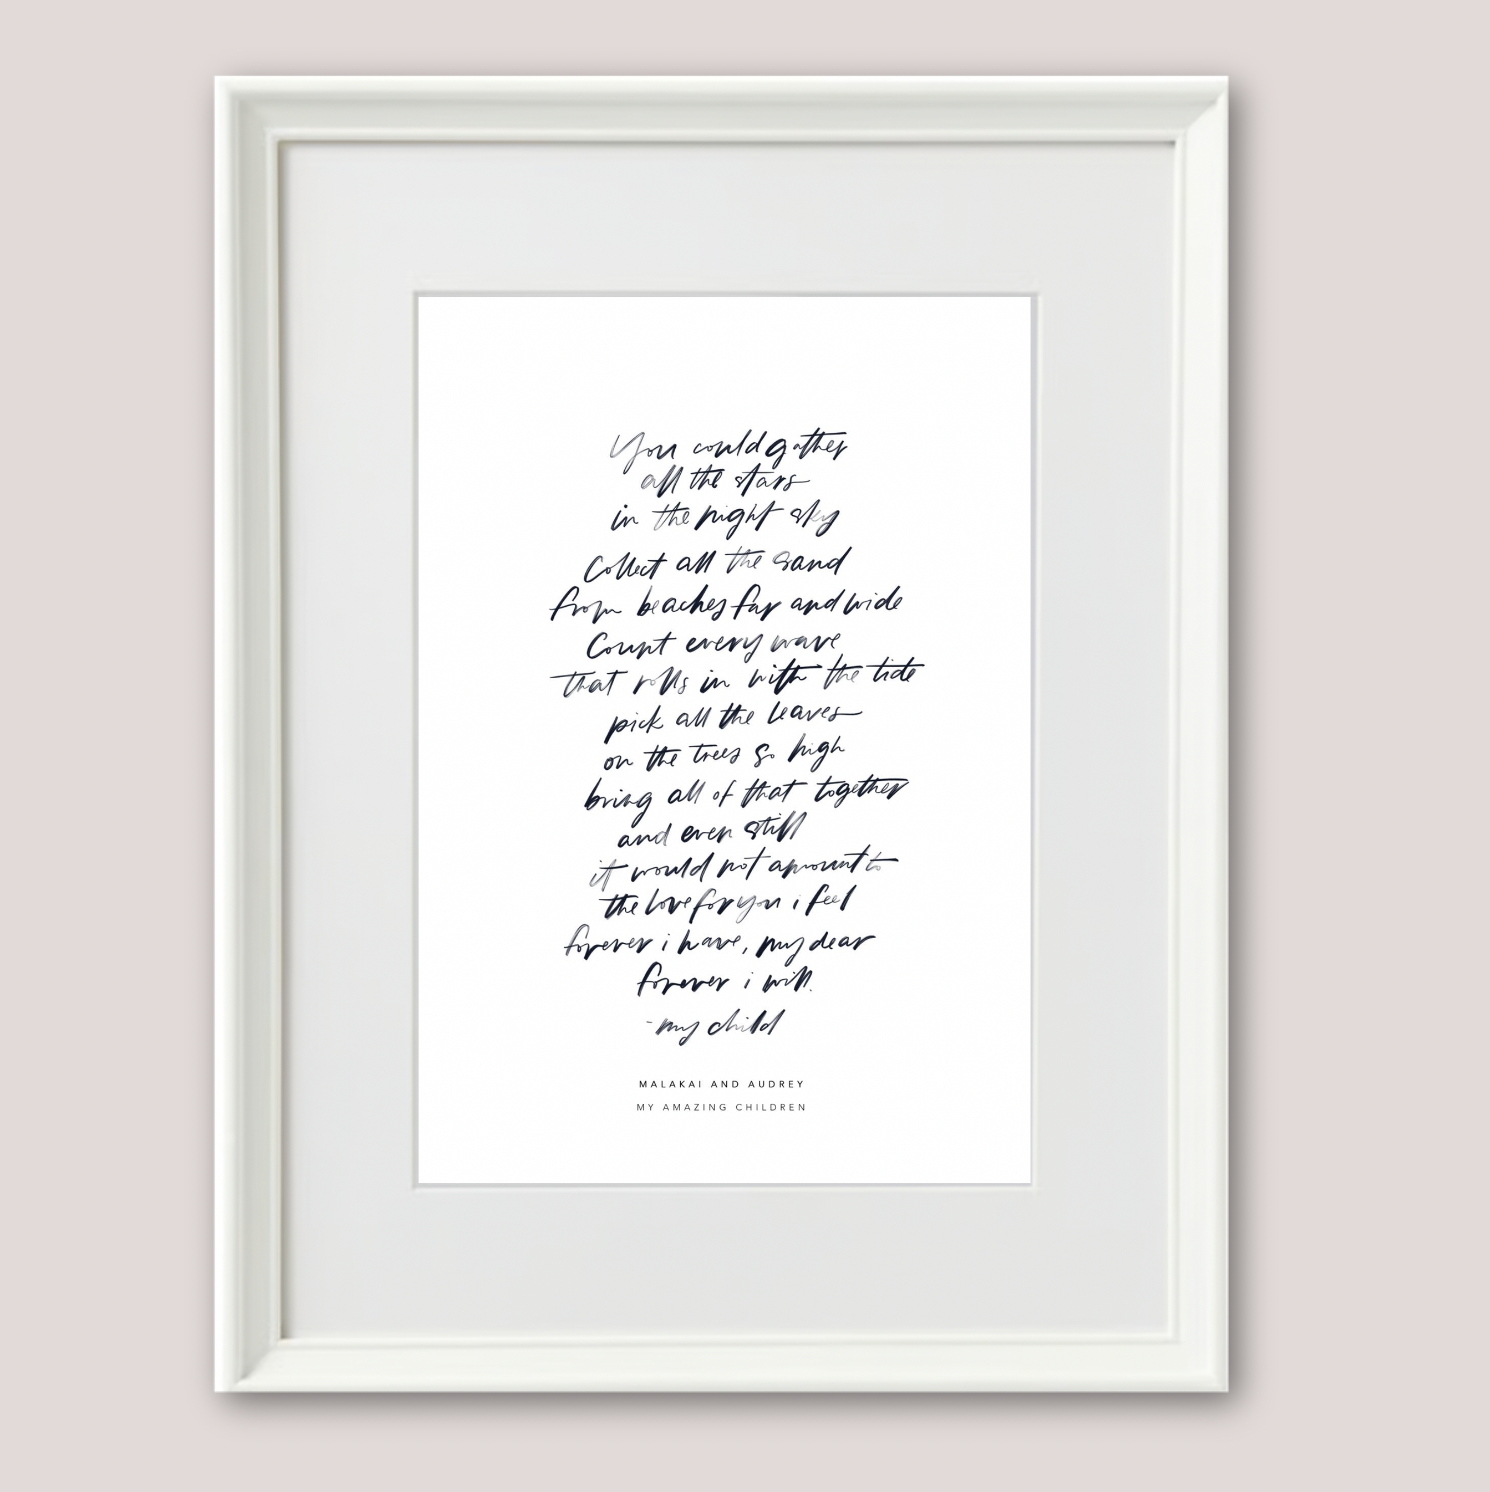 You could gather
all the stars
in the night sky
Collect all the sand
from beaches far and wide
Count every wave
that rolls in with the tide
pick all the leaves
on the trees so high
bring all of that together
and even still
it would not amount to
the love for you i feel
forever i have, my dear
forever i will.
- my child
MALAKAI AND AUDREY
MY AMAZING CHILDREN